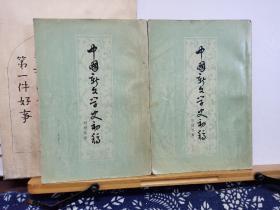 第一件好事
中國新文学史初稿
中國新文学史初稿